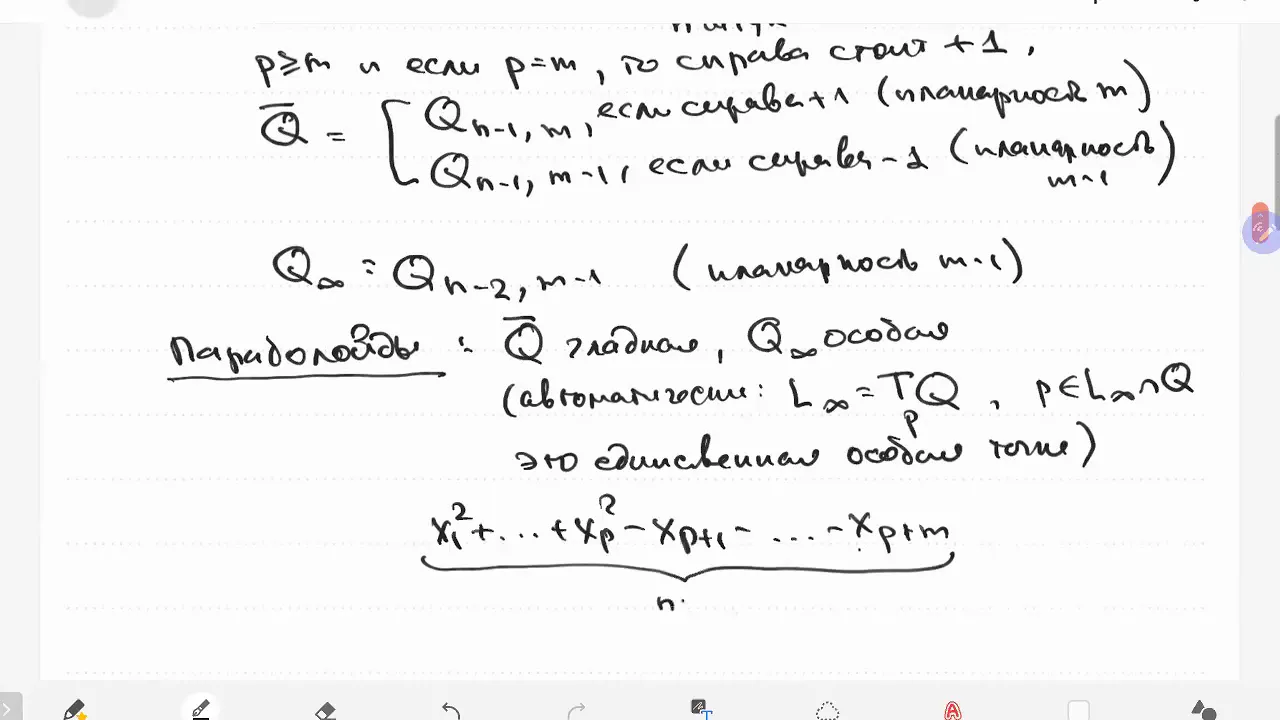 p≥m и если p=m, то справа стоит +1,
Q̅ = [ Q_{n-1, m}, если справа +1 (планарность m)
Q_{n-1, m-1}, если справа -1 (планарность m-1)
Q_∞ = Q_{n-2, m-1} (планарность m-1)
Параболоиды : Q̅ гладкая, Q_∞ особая
(автоматически: L_∞ = T_p Q, p ∈ L_∞ ∩ Q
это единственная особая точка)
x_1^2 + ... + x_p^2 - x_{p+1} - ... - x_{p+m}
n